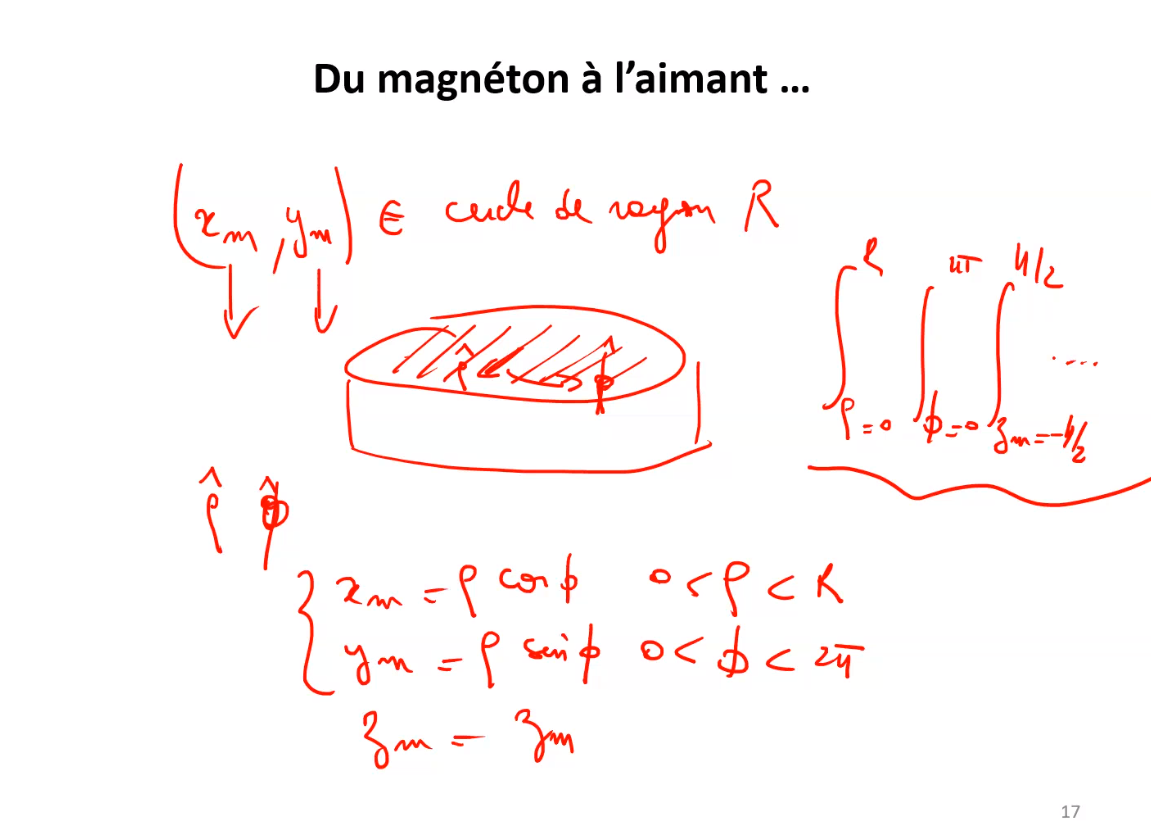 Du magnéton à l’aimant …
(x_m, y_m) ∈ cercle de rayon R
R 2π h/2
∫ ∫ ∫ ....
ρ=0 ϕ=0 z_m=-h/2
ρ̂ ϕ̂
ρ̂ ϕ̂
x_m = ρ cos ϕ 0 < ρ < R
y_m = ρ sin ϕ 0 < ϕ < 2π
z_m = z_m
17